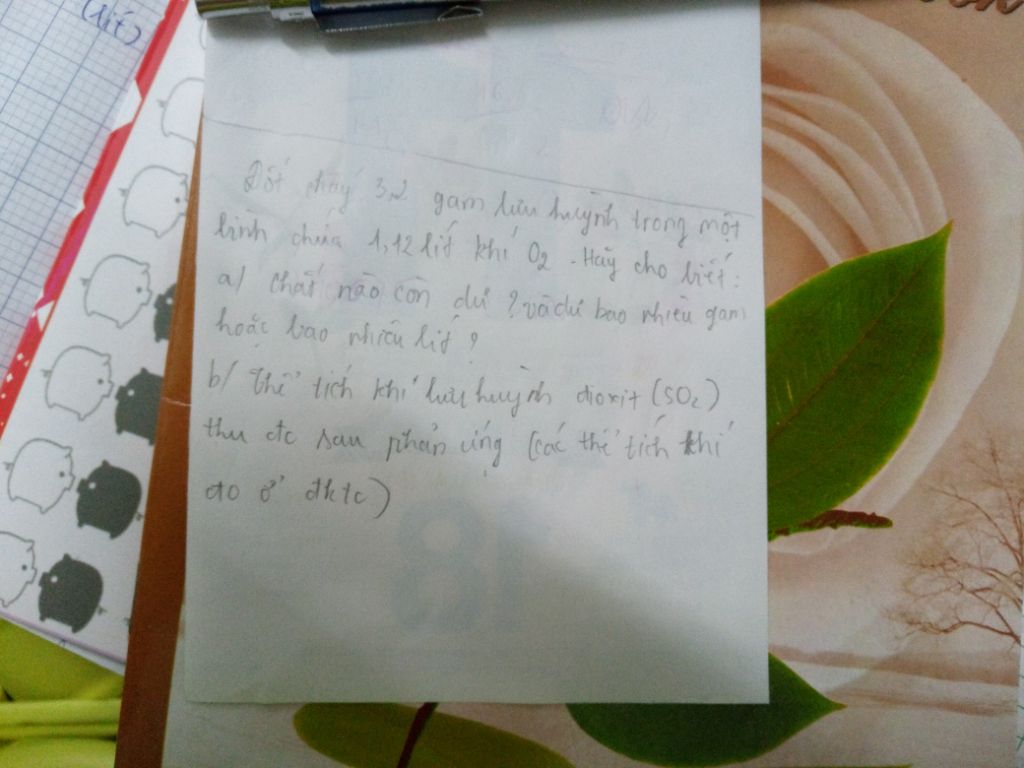 (lít)
Đốt cháy 3,2 gam lưu huỳnh trong một
bình chứa 1,12 lít khí O2. Hãy cho biết:
a/ Chất nào còn dư? và dư bao nhiêu gam
hoặc bao nhiêu lít?
b/ Thể tích khí lưu huỳnh đioxit (SO2)
thu đc sau phản ứng (các thể tích khí
đo ở đktc)